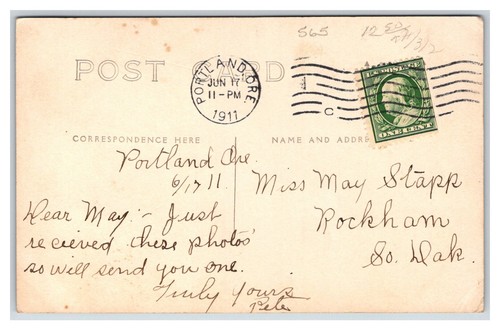 565
POST CARD
PORTLAND, ORE
JUN 17
11-PM
1911
U.S. POSTAGE
ONE CENT
C
CORRESPONDENCE HERE
NAME AND ADDR
Portland Ore.
6/17 11
Dear May:- Just
recieved these photos
so will send you one.
Truly Yours
Pete
Miss May Stapp
Rockham
So. Dak.